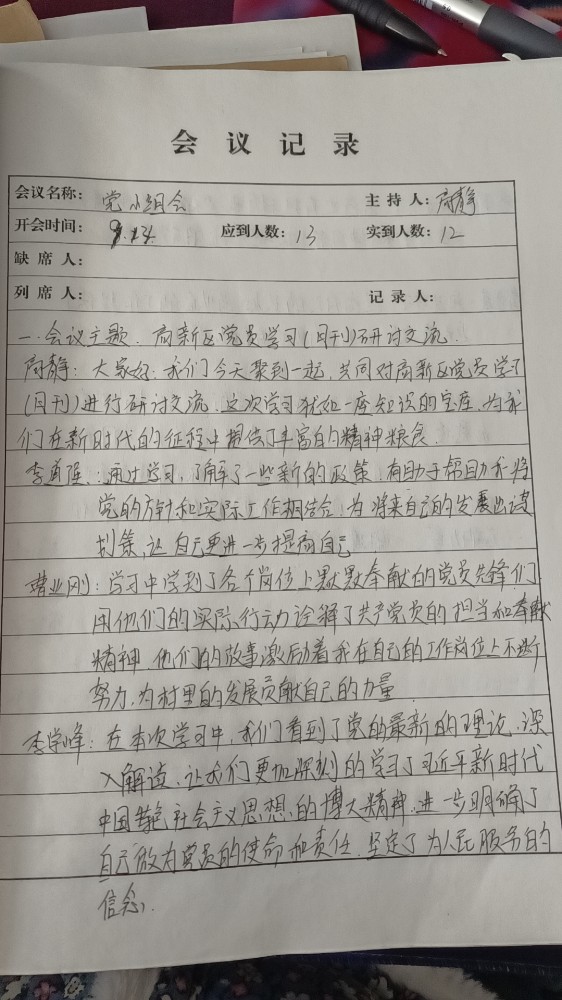 会议记录
会议名称：党小组会 主持人：周静
开会时间：9.14. 应到人数：13 实到人数：12
缺席人：
列席人： 记录人：
一.会议主题.高新区党员学习(月刊)研讨交流.
周静：大家好：我们今天聚到一起,共同对高新区党员学习
(月刊)进行研讨交流.这次学习犹如一座知识的宝库,为我
们在新时代的征程中提供了丰富的精神粮食.
李勇强：通过学习,了解了一些新的政策,有助于帮助我将
党的方针和实际工作相结合,为将来自己的发展出谋
划策,让自己更进一步提高自己
业刚：学习中学到了各个岗位上默默奉献的党员先锋们
用他们的实际行动诠释了共产党员的担当和奉献
精神,他们的故事激励着我在自己的工作岗位上不断
努力,为村里的发展贡献自己的力量
李学峰：在本次学习中,我们看到了党的最新的理论,深
入解读,让我们更加深刻的学习了习近平新时代
中国特色社会主义思想的博大精神,进一步明确了
自己做为党员的使命和责任.坚定了为人民服务的
信念.